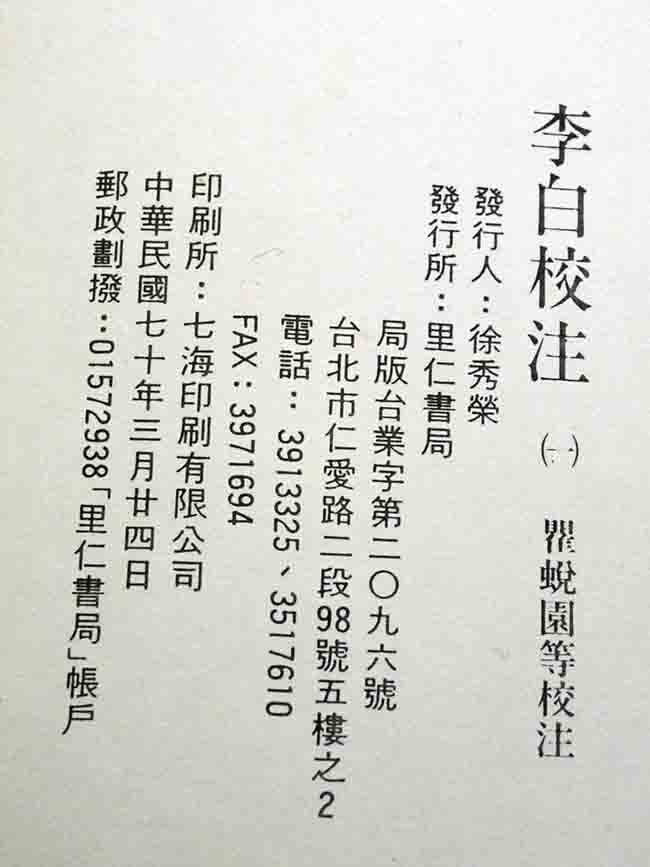 李白校注 ㈠ 瞿蛻園等校注
發行人：徐秀榮
發行所：里仁書局
局版台業字第二〇九六號
台北市仁愛路二段98號五樓之2
電話：3913325、3517610
FAX：3971694
印刷所：七海印刷有限公司
中華民國七十年三月廿四日
郵政劃撥：01572938「里仁書局」帳戶